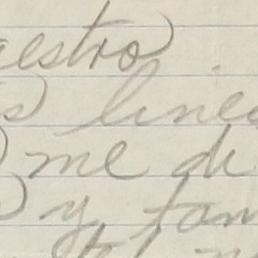 aestro
s linea
me di
y fam